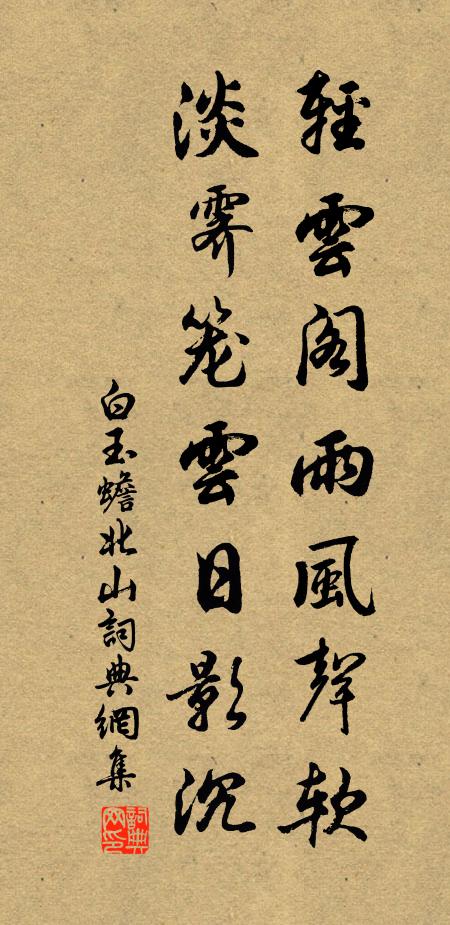 輕雲閣雨風聲軟
淡霽笼雲日影沉
白玉蟾北山詞典網集
詞典网印